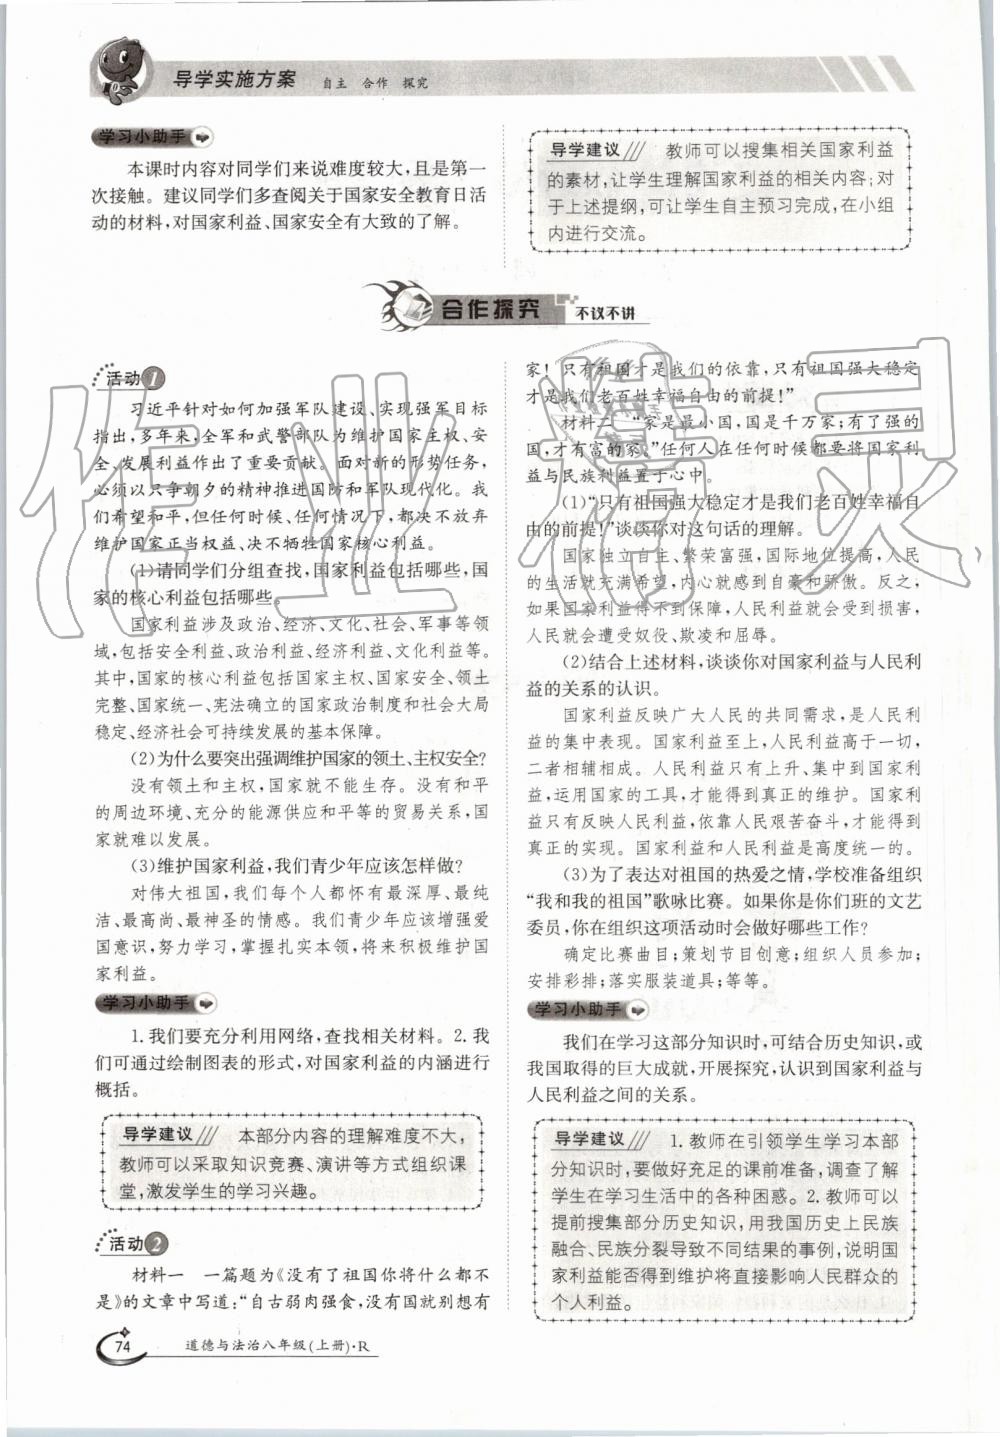 导学实施方案 自主 合作 探究
学习小助手
本课时内容对同学们来说难度较大,且是第一
次接触。建议同学们多查阅关于国家安全教育日活
动的材料,对国家利益、国家安全有大致的了解。
导学建议 教师可以搜集相关国家利益
的素材,让学生理解国家利益的相关内容;对
于上述提纲,可让学生自主预习完成,在小组
内进行交流。
合作探究 不议不讲
活动1
习近平针对如何加强军队建设、实现强军目标
指出,多年来,全军和武警部队为维护国家主权、安
全、发展利益作出了重要贡献。面对新的形势任务,
必须以只争朝夕的精神推进国防和军队现代化。我
们希望和平,但任何时候、任何情况下,都决不放弃
维护国家正当权益、决不牺牲国家核心利益。
(1)请同学们分组查找,国家利益包括哪些,国
家的核心利益包括哪些。
国家利益涉及政治、经济、文化、社会、军事等领
域,包括安全利益、政治利益、经济利益、文化利益等。
其中,国家的核心利益包括国家主权、国家安全、领土
完整、国家统一、宪法确立的国家政治制度和社会大局
稳定、经济社会可持续发展的基本保障。
(2)为什么要突出强调维护国家的领土、主权安全?
没有领土和主权,国家就不能生存。没有和平
的周边环境、充分的能源供应和平等的贸易关系,国
家就难以发展。
(3)维护国家利益,我们青少年应该怎样做?
对伟大祖国,我们每个人都怀有最深厚、最纯
洁、最高尚、最神圣的情感。我们青少年应该增强爱
国意识,努力学习,掌握扎实本领,将来积极维护国
家利益。
学习小助手
1.我们要充分利用网络,查找相关材料。2.我
们可通过绘制图表的形式,对国家利益的内涵进行
概括。
导学建议 本部分内容的理解难度不大,
教师可以采取知识竞赛、演讲等方式组织课
堂,激发学生的学习兴趣。
活动2
材料一 一篇题为《没有了祖国你将什么都不
是》的文章中写道:“自古弱肉强食,没有国就别想有
家!只有祖国才是我们的依靠,只有祖国强大稳定
才是我们老百姓幸福自由的前提!”
材料二 “家是最小国,国是千万家;有了强的
国,才有富的家。”任何人在任何时候都要将国家利
益与民族利益置于心中。
(1)“只有祖国强大稳定才是我们老百姓幸福自
由的前提!”谈谈你对这句话的理解。
国家独立自主、繁荣富强,国际地位提高,人民
的生活就充满希望,内心就感到自豪和骄傲。反之,
如果国家利益得不到保障,人民利益就会受到损害,
人民就会遭受奴役、欺凌和屈辱。
(2)结合上述材料,谈谈你对国家利益与人民利
益的关系的认识。
国家利益反映广大人民的共同需求,是人民利
益的集中表现。国家利益至上,人民利益高于一切,
二者相辅相成。人民利益只有上升、集中到国家利
益,运用国家的工具,才能得到真正的维护。国家利
益只有反映人民利益,依靠人民艰苦奋斗,才能得到
真正的实现。国家利益和人民利益是高度统一的。
(3)为了表达对祖国的热爱之情,学校准备组织
“我和我的祖国”歌咏比赛。如果你是你们班的文艺
委员,你在组织这项活动时会做好哪些工作?
确定比赛曲目;策划节目创意;组织人员参加;
安排彩排;落实服装道具;等等。
学习小助手
我们在学习这部分知识时,可结合历史知识,或
我国取得的巨大成就,开展探究,认识到国家利益与
人民利益之间的关系。
导学建议 1.教师在引领学生学习本部
分知识时,要做好充足的课前准备,调查了解
学生在学习生活中的各种困惑。2.教师可以
提前搜集部分历史知识,用我国历史上民族
融合、民族分裂导致不同结果的事例,说明国
家利益能否得到维护将直接影响人民群众的
个人利益。
74 道德与法治八年级(上册)·R
作业精灵